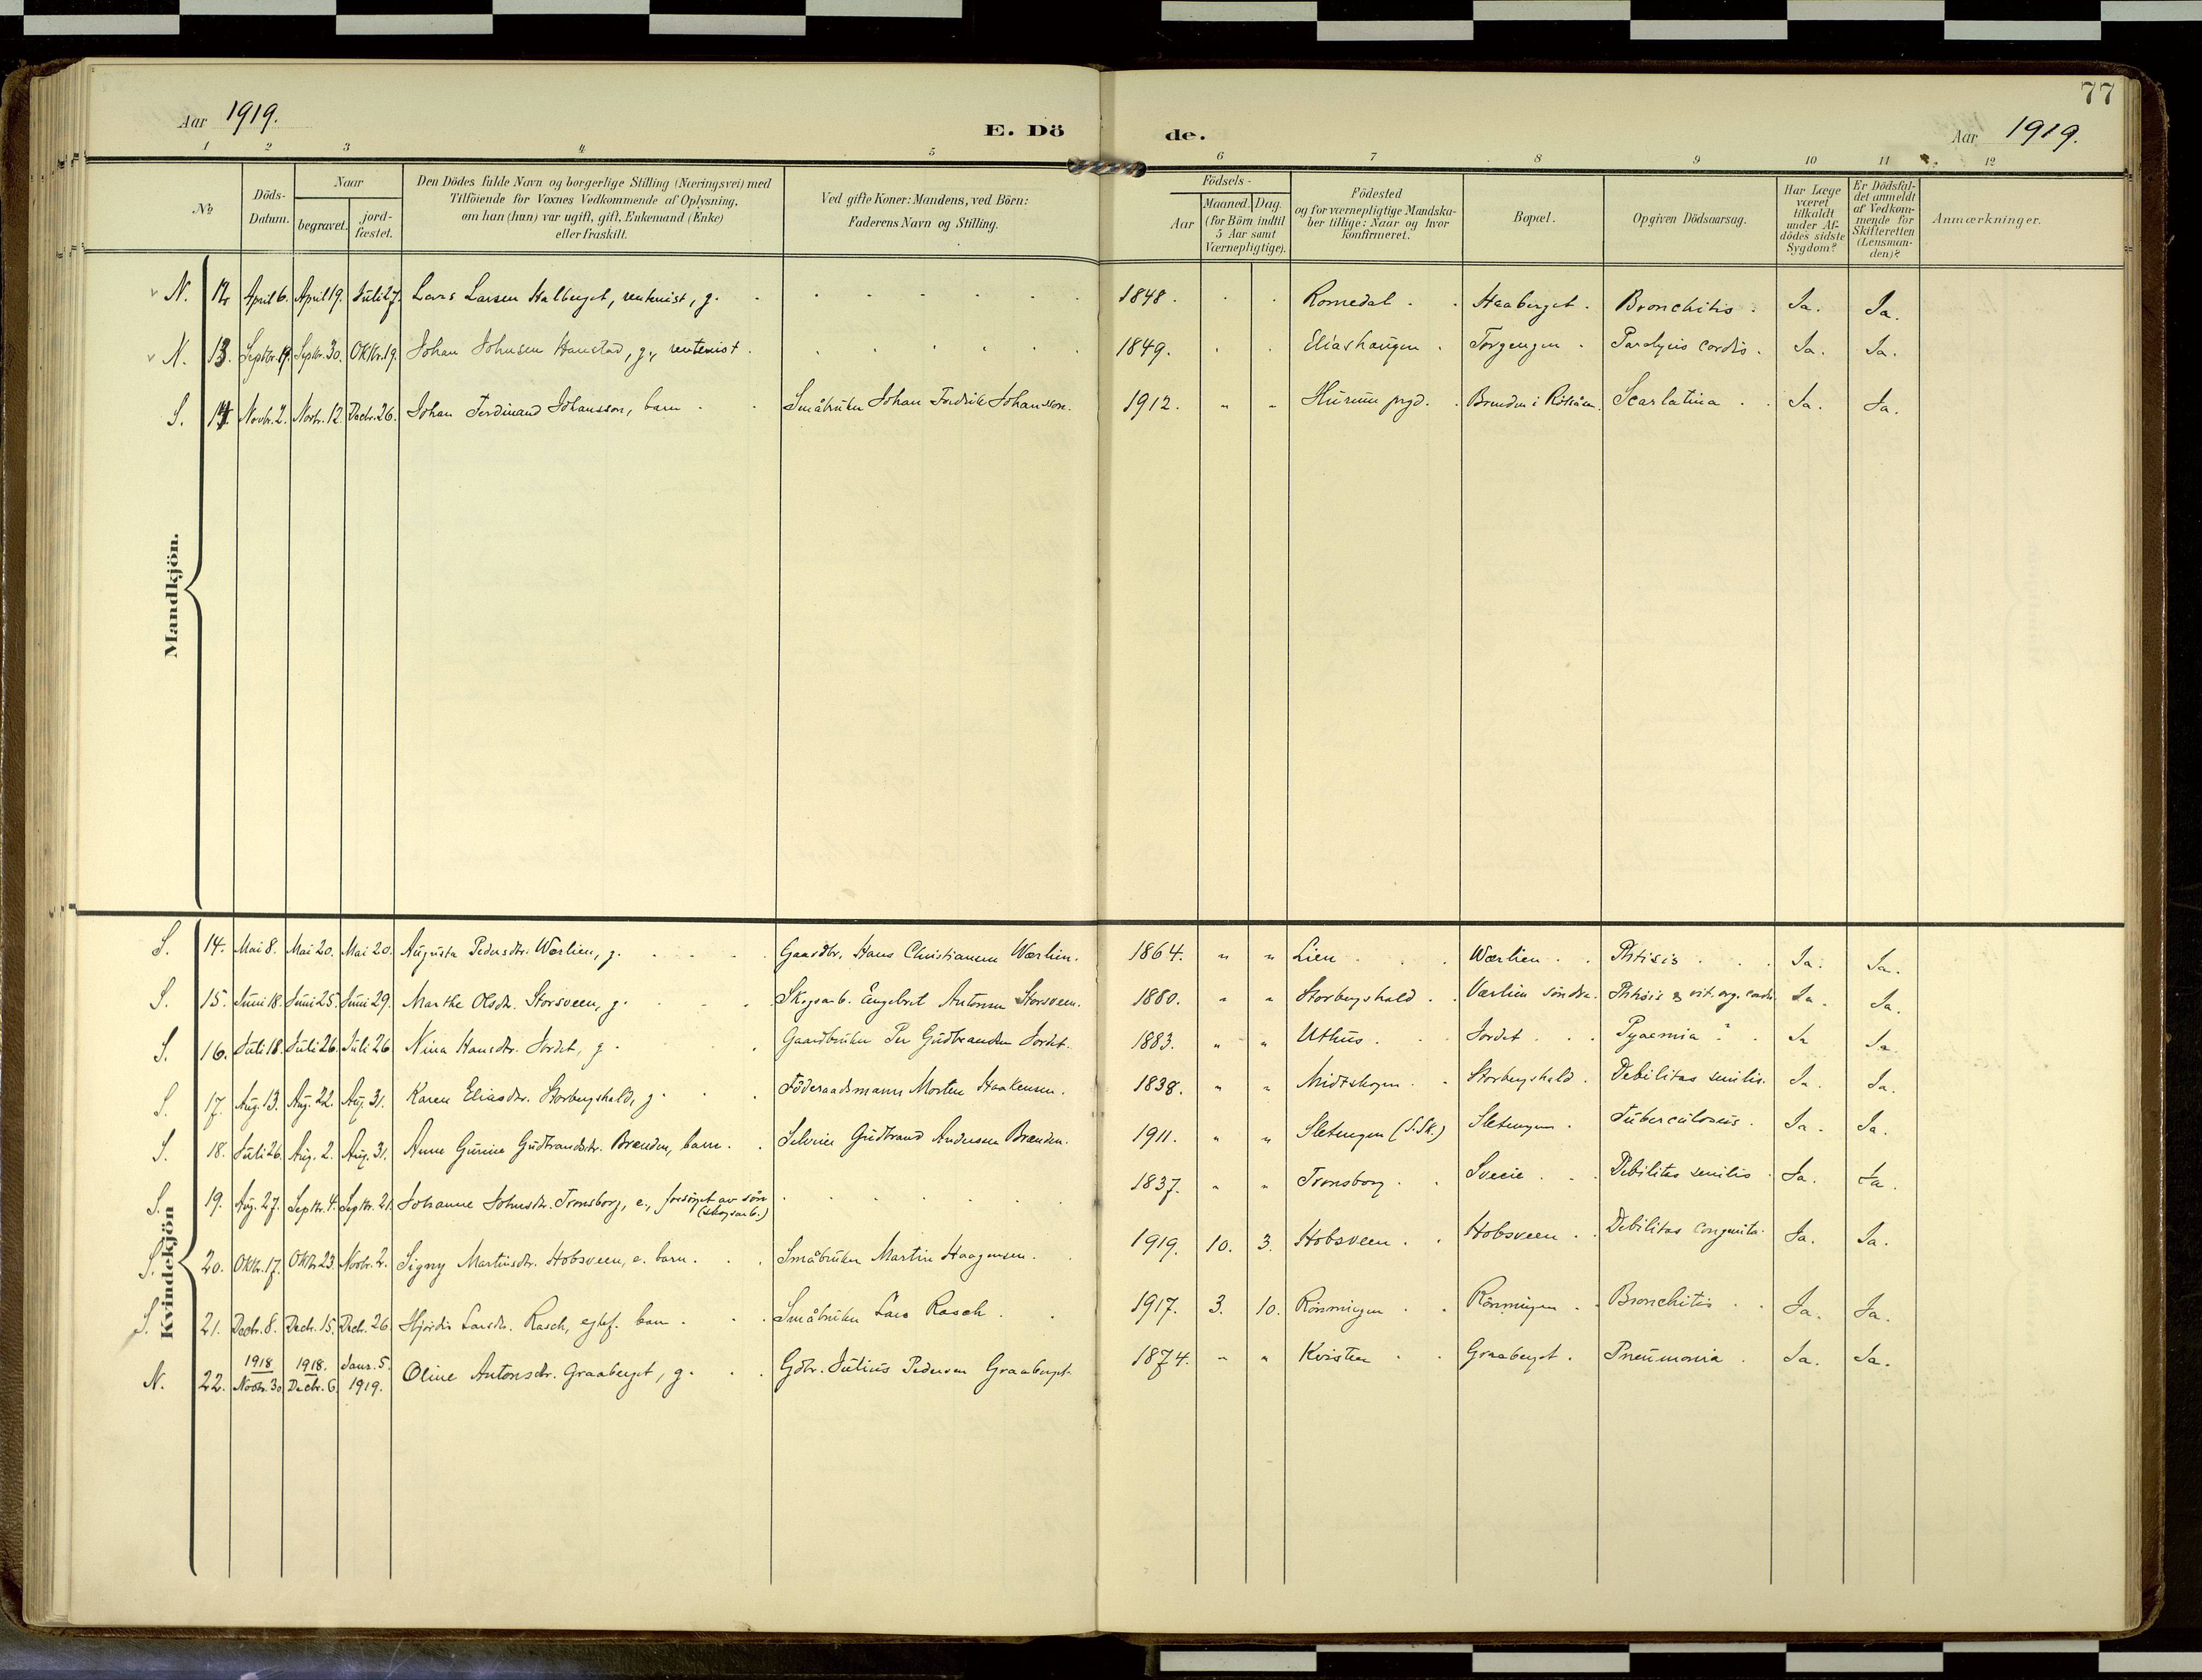 77
Aar 1919. E. Döde. Aar 1919.
1 2 3 4 5 6 7 8 9 10 11 12
№
Döds-Datum.
Naar
begravet.
jord-fæstet.
Den Dödes fulde Navn og borgerlige Stilling (Næringsvei) med
Tilföiende for Voxnes Vedkommende af Oplysning,
om han (hun) var ugift, gift, Enkemand (Enke)
eller fraskilt.
Ved gifte Koner: Mandens, ved Börn:
Faderens Navn og Stilling.
Födsels-
Aar
Maaned. Dag.
(for Börn indtil
5 Aar samt
Værnepligtige).
Födested
og for værnepligtige Mandska-
ber tillige: Naar og hvor
konfirmeret.
Bopæl.
Opgiven Dödsaarsag.
Har Læge
været
tilkaldt
under Af-
dödes sidste
Sygdom?
Er Dödsfal-
det anmeldt
af Vedkom-
mende for
Skifteretten
(Lensman-
den)?
Anmærkninger.
Mandkjön.
N. 12 April 6. April 19. Juli 27. Lars Larsen Halberget, rentenist, g. 1848. Romedal. Haaberget. Bronchitis. Ja. Ja.
N. 13. Septbr. 19. Septbr. 30. Oktbr. 19. Johan Johnsen Hanstad, g., rentenist. 1849. Eliashaugen. Torgengen. Paralysis cordis. Ja. Ja.
S. 14. Novbr. 2. Novbr. 12. Decbr. 26. Johan Ferdinand Johansson, barn. Småbruker Johan Fredrik Johansson. 1912. " " Hurum prgd. Brenden i Scarlatina. Ja. Ja.
Kvindekjön
S. 14. Mai 8. Mai 20. Mai 20. Augusta Pedersdtr. Wærlien, g. Gaardbr. Hans Christiansen Wærlien. 1864. " " Lien. Wærlien. Phtisis. Ja. Ja.
S. 15. Juni 18. Juni 25. Juni 29. Marthe Olsdtr. Storsveen, g. Skogsarb. Engebret Antonsen Storsveen. 1880. " " Storbergshald. Værlien söndre. Phtisis & vit. org. cordis. Ja. Ja.
S. 16. Juli 18. Juli 26. Juli 26 Nina Hansdtr. Jordet, g. Gaardbruker Per Gudbrandsen Jordet. 1883. " " Uthus. Jordet. Pyaemia? Ja Ja
S. 17. Aug. 13. Aug. 22. Aug. 31. Karen Eliasdtr. Storbergshald, g. Föderaadsmann Morten Haakensen. 1838. " " Midtskogen. Storbergshald. Debilitas senilis. Ja. Ja.
S. 18. Juli 26. Aug. 2. Aug. 31. Anne Gurine Gudbrandsdtr. Brænden, barn. Selveier Gudbrand Andersen Brænden. 1911. " " Sletengen (S.Sk.) Sletengen. Tuberculosis. Ja. Ja.
S. 19. Aug. 27. Septbr. 4. Septbr. 21. Johanne Johnsdtr. Tronsborg, e., forsörget av sön
(skogsarb.) 1837. " " Tronsborg. Svecie. Debilitas senilis. Ja. Ja.
S. 20. Oktbr. 17. Oktbr. 23. Novbr. 2. Signy Martinsdtr. Hobsveen, e. barn. Småbruker Martin Haagensen. 1919. 10. 3. Hobsveen. Hobsveen. Debilitas congenita. Ja. Ja.
S. 21. Decbr. 8. Decbr. 15. Decbr. 26. Hjördis Larsdtr. Rasch, egtef. barn. Småbruker Lars Rasch. 1917. 3. 10. Rönningen. Rönningen. Bronchitis. Ja. Ja.
N. 22. 1918 Novbr. 30 1918. Decbr. 6. Janr. 5. 1919. Oline Antonsdtr. Graaberget, g. Gdbr. Julius Pedersen Graaberget. 1874. " " Kvisten. Graaberget. Pneumonia. Ja. Ja.